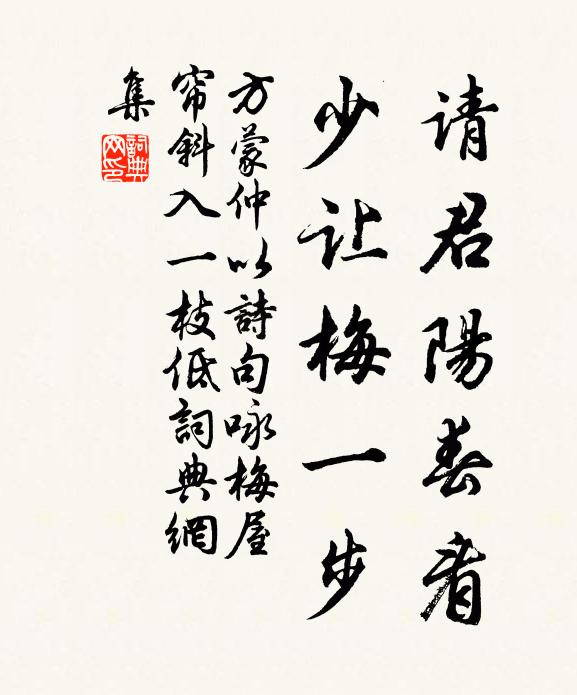 请君陽春看
少让梅一步
方蒙仲以詩句咏梅屋
帘斜入一枝低詞典網
集
詞典
网印